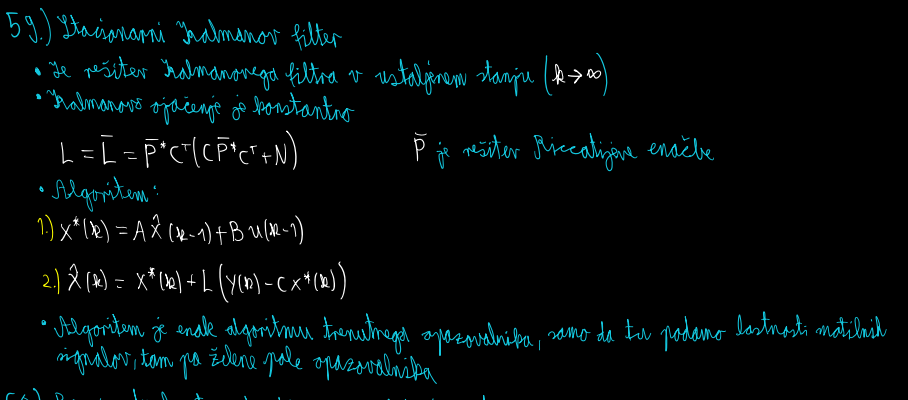 59.) Stacionarni Kalmanov filter
• Je rešitev Kalmanovega filtra v ustaljenem stanju (k → ∞)
• Kalmanovo ojačenje je konstantno
L = L̄ = P̄*Cᵀ(CP̄*Cᵀ+N) P̄ je rešitev Riccatijeve enačbe
• Algoritem:
1.) x*(k) = A x̂(k-1) + B u(k-1)
2.) x̂(k) = x*(k) + L(y(k) - Cx*(k))
• Algoritem je enak algoritmu trenutnega opazovalnika, samo da tu podamo lastnosti motilnih
signalov, tam pa želene pole opazovalnika